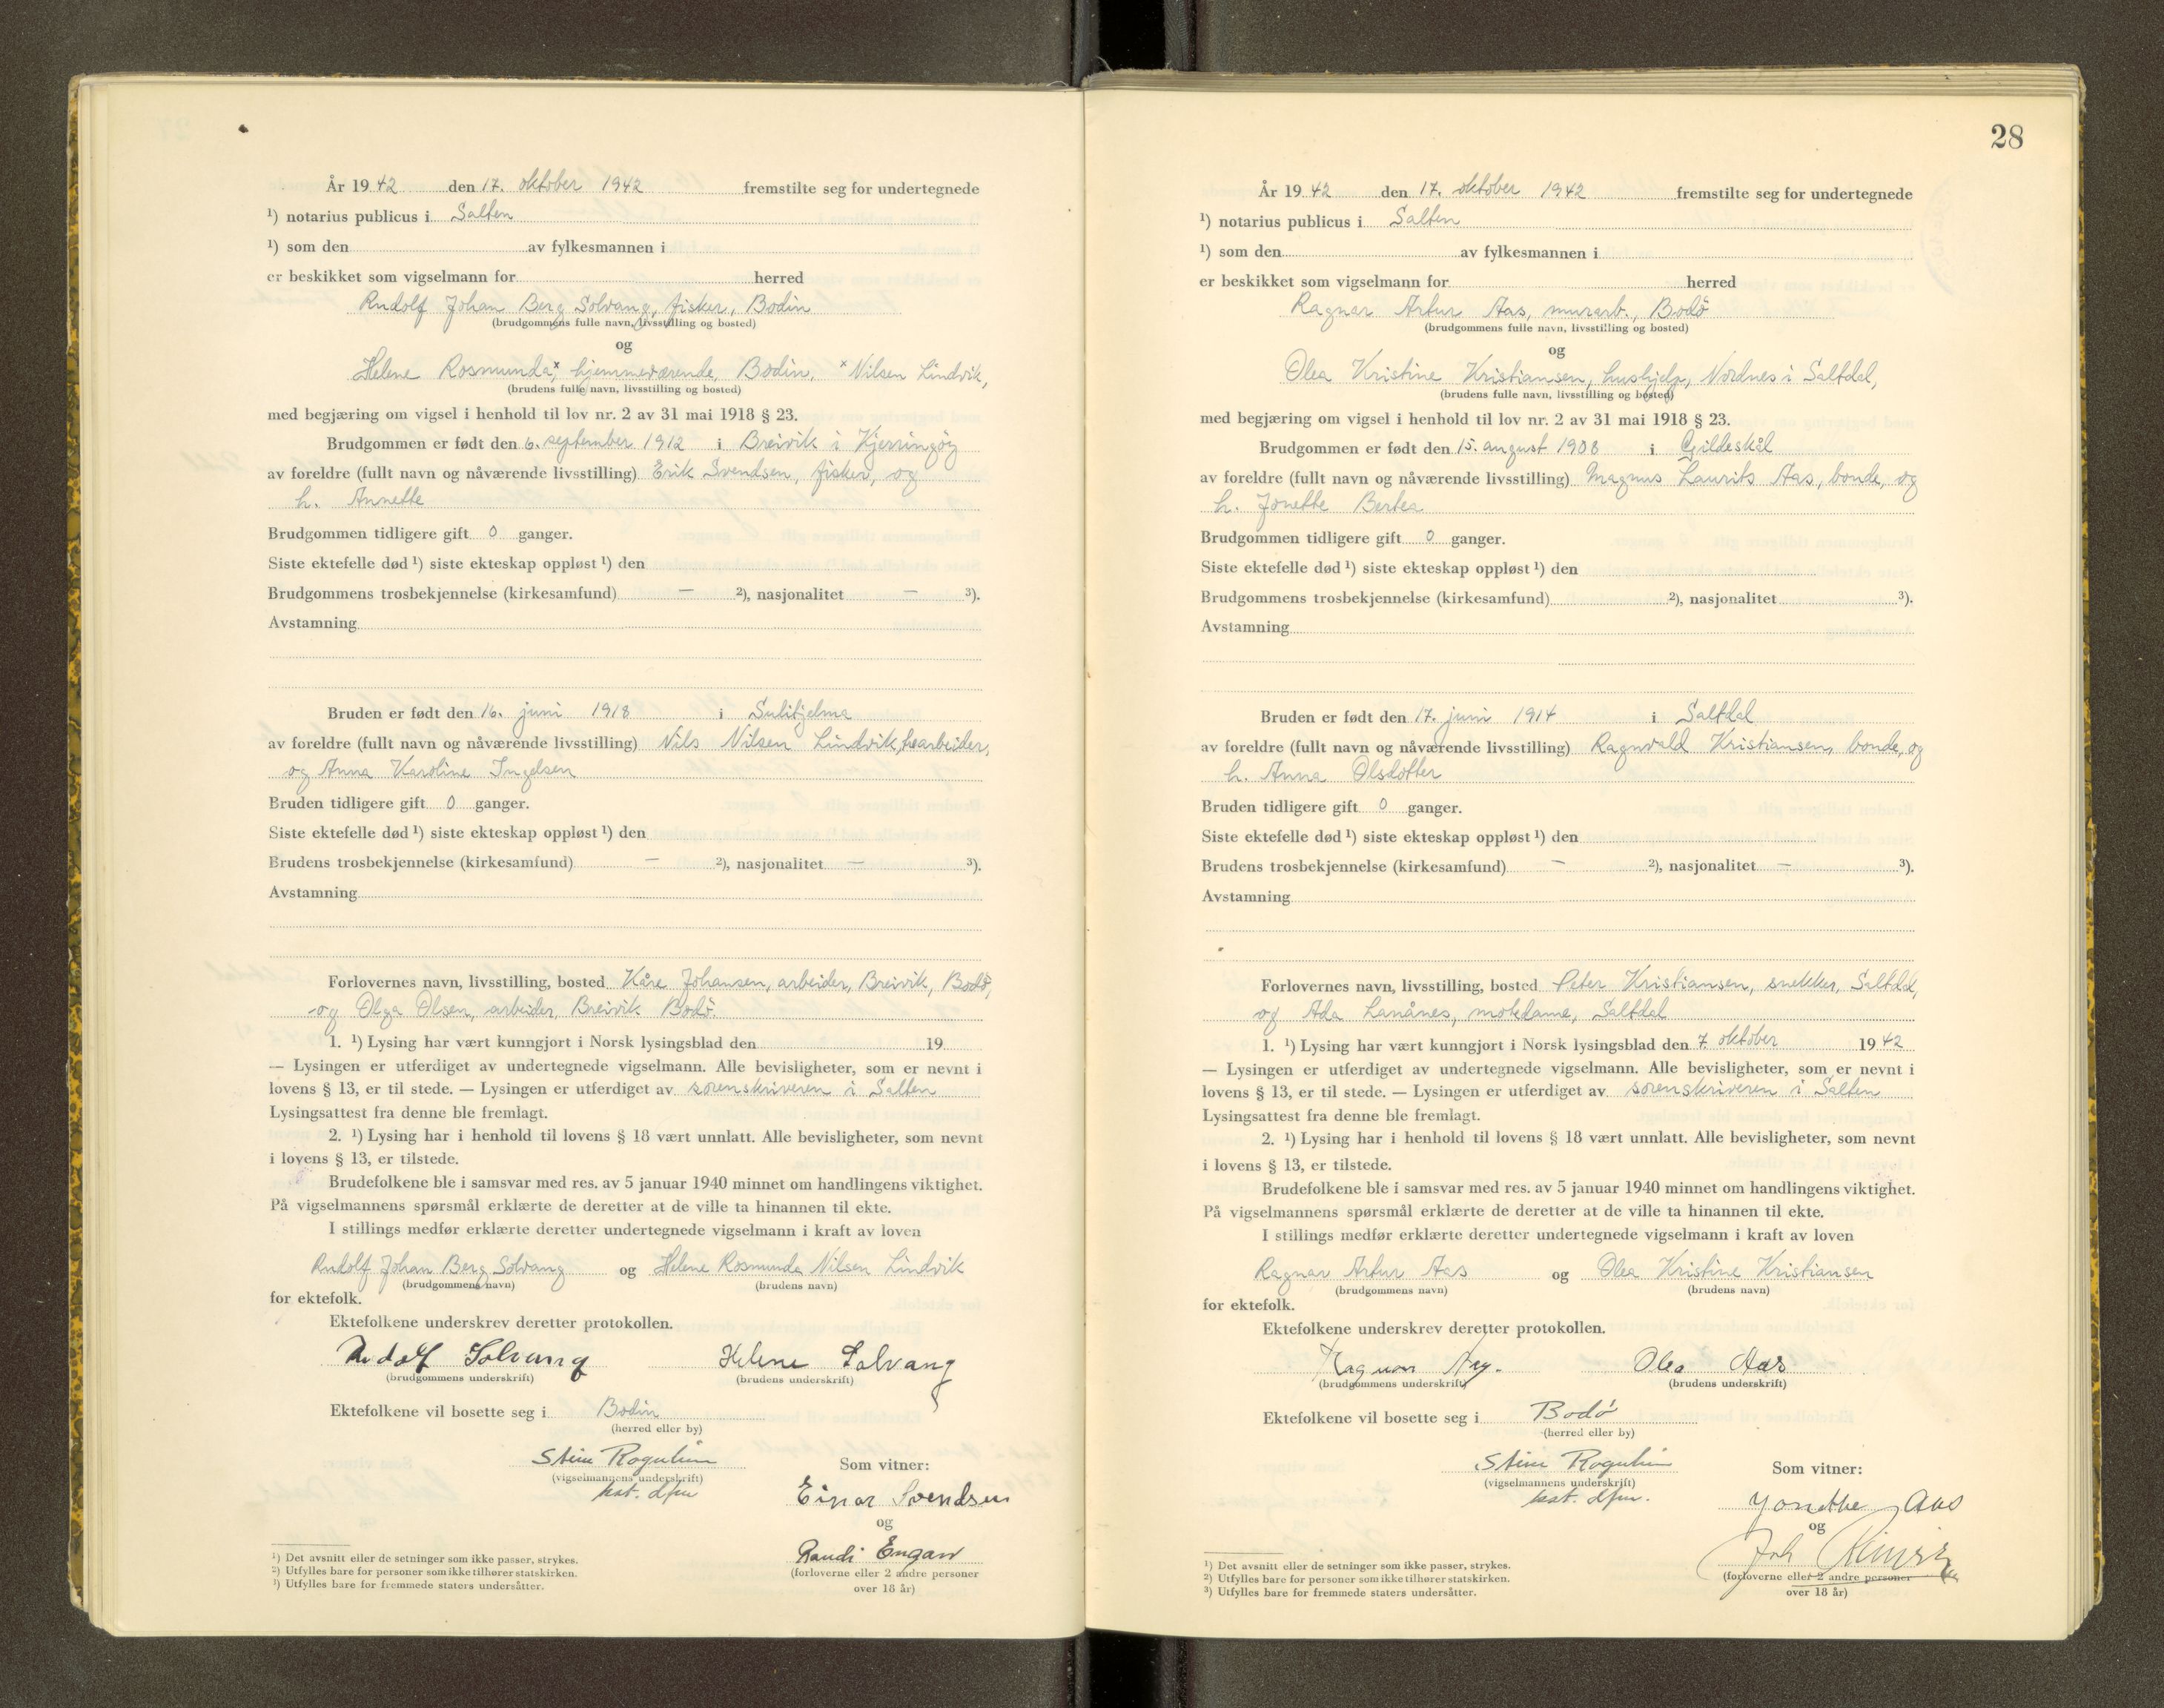 År 19 42 den 17. oktober 1942 fremstilte seg for undertegnede
¹) notarius publicus i Salten
¹) som den av fylkesmannen i
er beskikket som vigselmann for herred
Rudolf Johan Berg Solvang, fisker, Bodin
(brudgommens fulle navn, livsstilling og bosted)
og
Helene Rosmunda,ˣ hjemmeværende, Bodin, ˣ Nilsen Lindvik,
(brudens fulle navn, livsstilling og bosted)
med begjæring om vigsel i henhold til lov nr. 2 av 31 mai 1918 § 23.
Brudgommen er født den 6. september 1912 i Breivik i Kjerringøy
av foreldre (fullt navn og nåværende livsstilling) Erik Svendsen, fisker, og
h. Annette
Brudgommen tidligere gift 0 ganger.
Siste ektefelle død ¹) siste ekteskap oppløst ¹) den
Brudgommens trosbekjennelse (kirkesamfund) — ²), nasjonalitet — ³).
Avstamning
Bruden er født den 16. juni 1918 i Sulitjelma
av foreldre (fullt navn og nåværende livsstilling) Nils Nilsen Lindvik,
og Anna Karoline Ingelsen
Bruden tidligere gift 0 ganger.
Siste ektefelle død ¹) siste ekteskap oppløst ¹) den
Brudens trosbekjennelse (kirkesamfund) — ²), nasjonalitet — ³).
Avstamning
Forlovernes navn, livsstilling, bosted Kåre Johansen, arbeider, Breivik, Bodø,
og Olga Olsen, arbeider, Breivik Bodø.
1. ¹) Lysing har vært kunngjort i Norsk lysingsblad den 19
— Lysingen er utferdiget av undertegnede vigselmann. Alle bevisligheter, som er nevnt i
lovens § 13, er til stede. — Lysingen er utferdiget av sorenskriveren i Salten
Lysingsattest fra denne ble fremlagt.
2. ¹) Lysing har i henhold til lovens § 18 vært unnlatt. Alle bevisligheter, som nevnt
i lovens § 13, er tilstede.
Brudefolkene ble i samsvar med res. av 5 januar 1940 minnet om handlingens viktighet.
På vigselmannens spørsmål erklærte de deretter at de ville ta hinannen til ekte.
I stillings medfør erklærte deretter undertegnede vigselmann i kraft av loven
Rudolf Johan Berg Solvang og Helene Rosmunda Nilsen Lindvik
(brudgommens navn) (brudens navn)
for ektefolk.
Ektefolkene underskrev deretter protokollen.
Rudolf Solvang Helene Solvang
(brudgommens underskrift) (brudens underskrift)
Ektefolkene vil bosette seg i Bodin
(herred eller by)
Stein Rognlien Som vitner:
(vigselmannens underskrift)
kst. dfm
Einar Svendsen
og
Randi Engan
(forloverne eller 2 andre personer
over 18 år)
¹) Det avsnitt eller de setninger som ikke passer, strykes.
²) Utfylles bare for personer som ikke tilhører statskirken.
³) Utfylles bare for fremmede staters undersåtter.
28
År 19 42 den 17. oktober 1942 fremstilte seg for undertegnede
¹) notarius publicus i Salten
¹) som den av fylkesmannen i
er beskikket som vigselmann for herred
Ragnar Artur Aas, murarb., Bodø
(brudgommens fulle navn, livsstilling og bosted)
og
Olea Kristine Kristiansen, hushjelp, Nordnes i Saltdal,
(brudens fulle navn, livsstilling og bosted)
med begjæring om vigsel i henhold til lov nr. 2 av 31 mai 1918 § 23.
Brudgommen er født den 15. august 1908 i Gildeskål
av foreldre (fullt navn og nåværende livsstilling) Magnus Laurits Aas, bonde, og
h. Jonette Bertea
Brudgommen tidligere gift 0 ganger.
Siste ektefelle død ¹) siste ekteskap oppløst ¹) den
Brudgommens trosbekjennelse (kirkesamfund) ²), nasjonalitet ³).
Avstamning
Bruden er født den 17. juni 1914 i Saltdal
av foreldre (fullt navn og nåværende livsstilling) Ragnvald Kristiansen, bonde, og
h. Anna Olsdotter
Bruden tidligere gift 0 ganger.
Siste ektefelle død ¹) siste ekteskap oppløst ¹) den
Brudens trosbekjennelse (kirkesamfund) — ²), nasjonalitet — ³).
Avstamning
Forlovernes navn, livsstilling, bosted Peter Kristiansen, snekker, Saltdal,
og Ada Lanånes, motedame, Saltdal
1. ¹) Lysing har vært kunngjort i Norsk lysingsblad den 7. oktober 19 42
— Lysingen er utferdiget av undertegnede vigselmann. Alle bevisligheter, som er nevnt i
lovens § 13, er til stede. — Lysingen er utferdiget av sorenskriveren i Salten
Lysingsattest fra denne ble fremlagt.
2. ¹) Lysing har i henhold til lovens § 18 vært unnlatt. Alle bevisligheter, som nevnt
i lovens § 13, er tilstede.
Brudefolkene ble i samsvar med res. av 5 januar 1940 minnet om handlingens viktighet.
På vigselmannens spørsmål erklærte de deretter at de ville ta hinannen til ekte.
I stillings medfør erklærte deretter undertegnede vigselmann i kraft av loven
Ragnar Artur Aas og Olea Kristine Kristiansen
(brudgommens navn) (brudens navn)
for ektefolk.
Ektefolkene underskrev deretter protokollen.
Ragnar Aas. Olea Aas
(brudgommens underskrift) (brudens underskrift)
Ektefolkene vil bosette seg i Bodø
(herred eller by)
Stein Rognlien Som vitner:
(vigselmannens underskrift)
kst. dfm.
Jonette Aas
og
Joh
(forloverne eller 2 andre personer
over 18 år)
¹) Det avsnitt eller de setninger som ikke passer, strykes.
²) Utfylles bare for personer som ikke tilhører statskirken.
³) Utfylles bare for fremmede staters undersåtter.